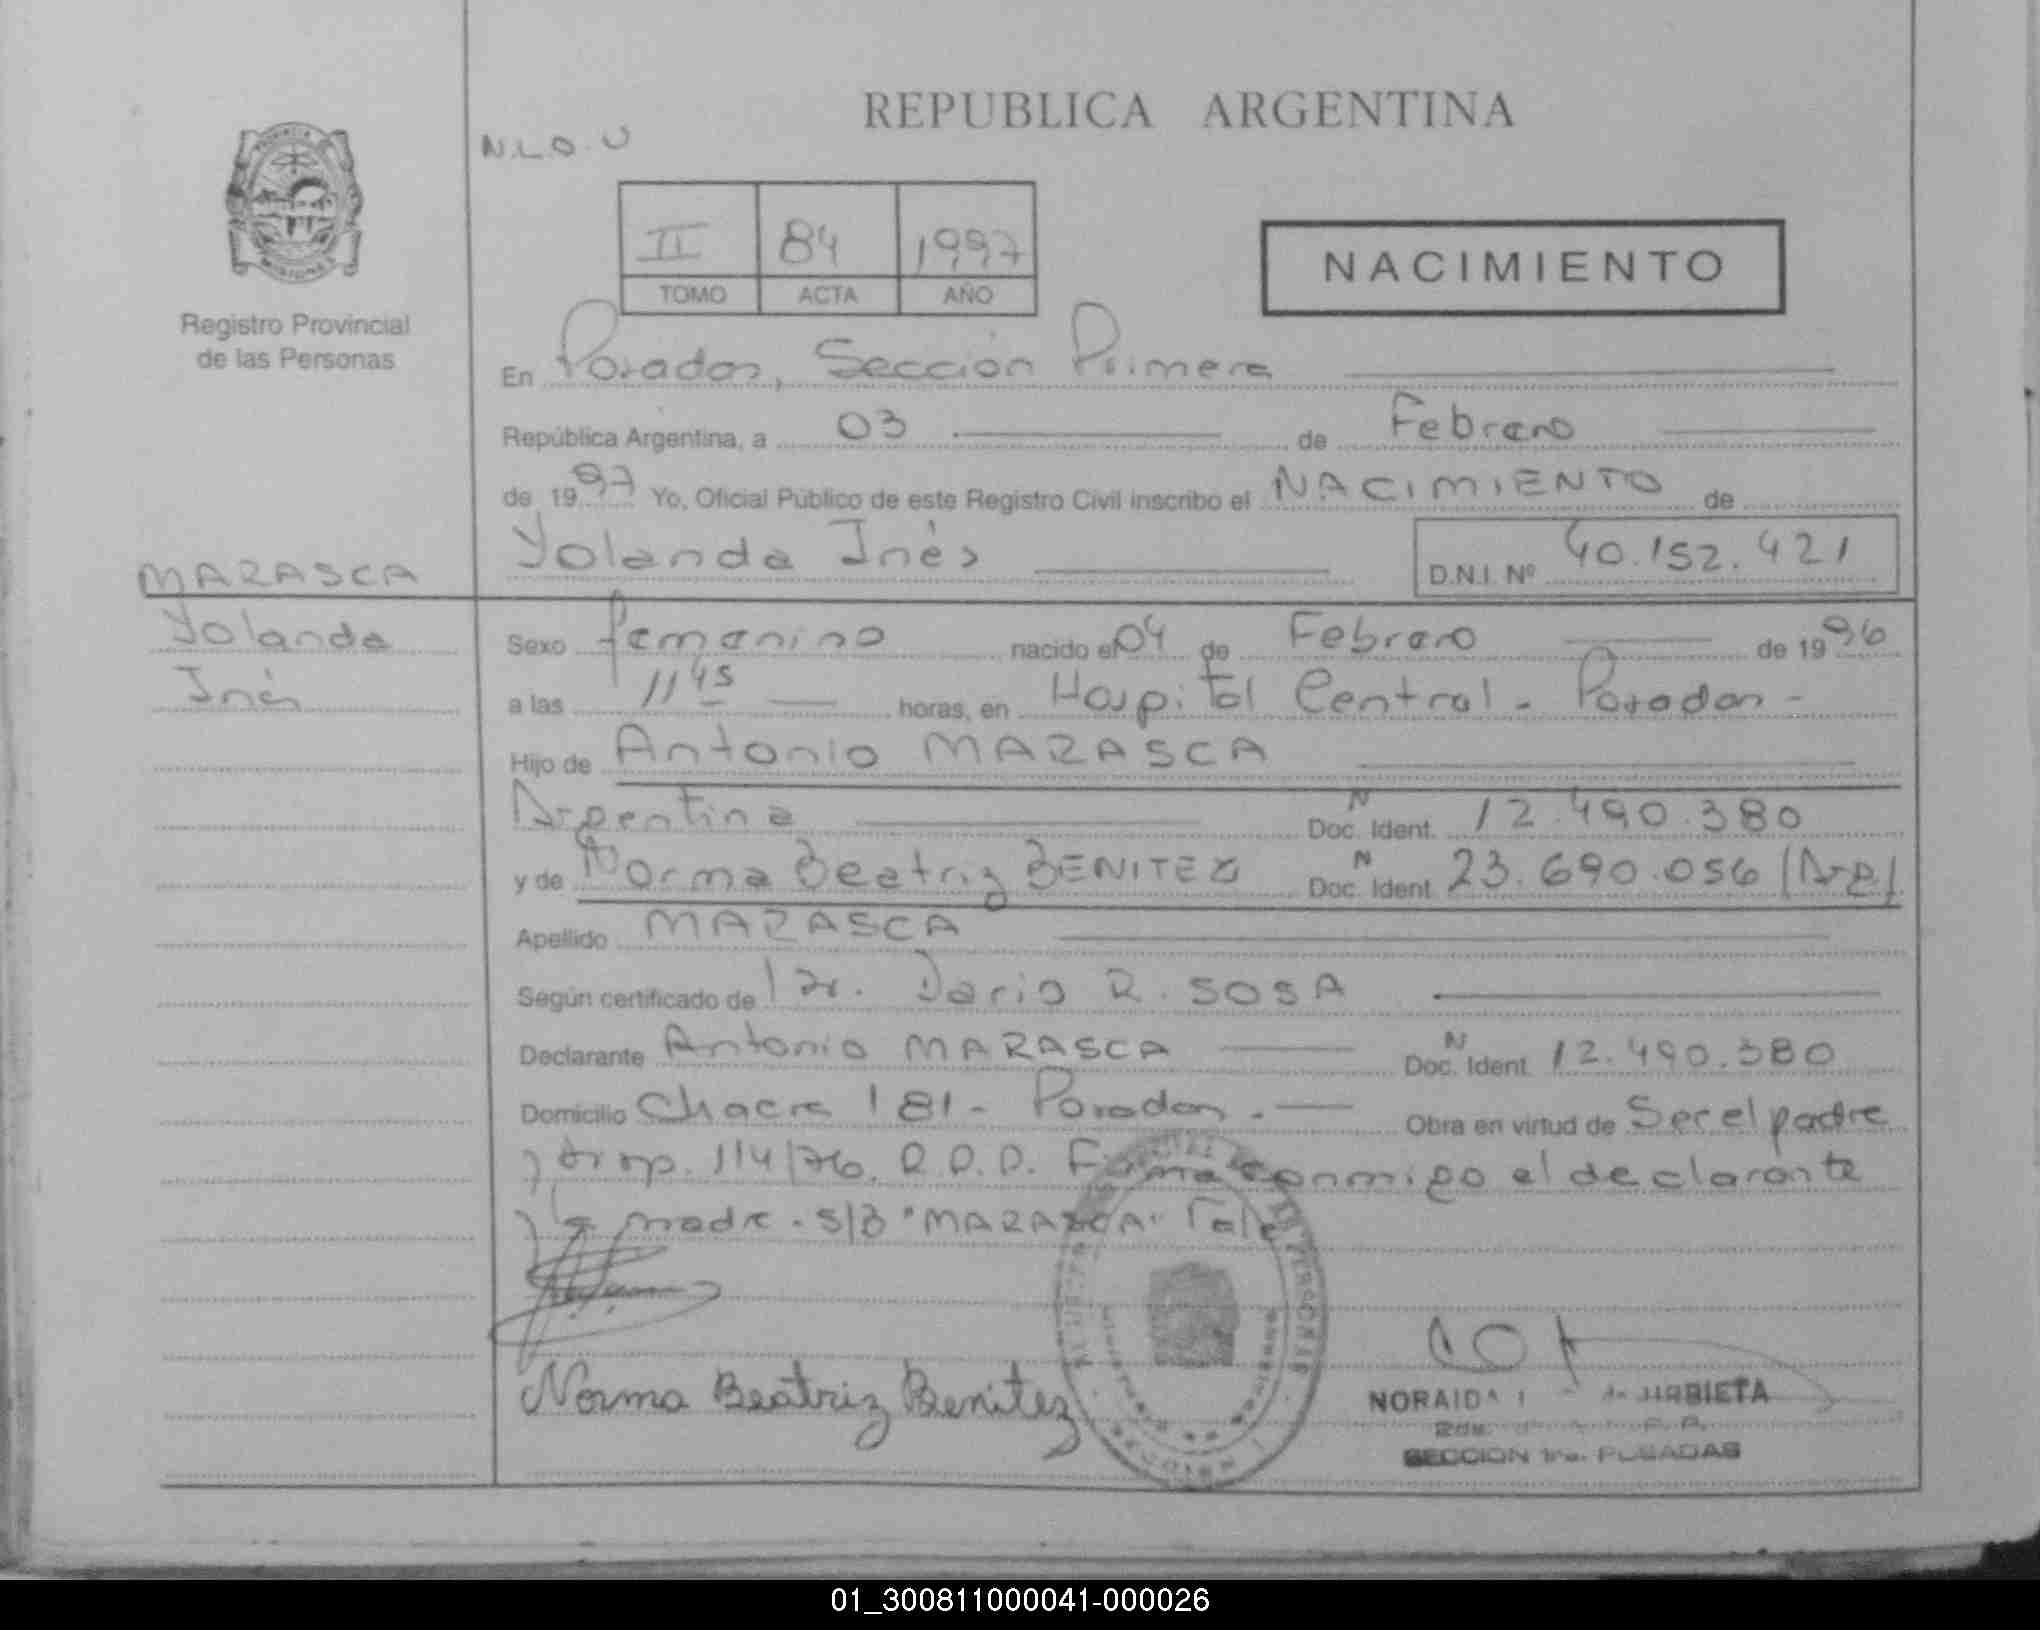 REPUBLICA ARGENTINA
N.L.O.U
II 84 1997
TOMO ACTA AÑO
NACIMIENTO
Registro Provincial
de las Personas
En Posadas, Sección Primera
República Argentina, a 03 de Febrero
de 1997 Yo, Oficial Público de este Registro Civil inscribo el NACIMIENTO de
Yolanda Inés D.N.I. Nº 40.152.421
MARASCA
Yolanda
Inés
Sexo femenino nacido el 04 de Febrero de 1996
a las 11 45 horas, en Hospital Central - Posadas -
Hijo de Antonio MARASCA
Argentina Doc. Ident. N 12.490.380
y de Norma Beatriz BENITEZ Doc. Ident. N 23.690.056 (Arg)
Apellido MARASCA
Según certificado de Dr. Dario R. SOSA
Declarante Antonio MARASCA Doc. Ident. N 12.490.380
Domicilio Chacra 181 - Posadas - Obra en virtud de Ser el padre
y disp. 114/76. D.D.D. Firma conmigo el declarante
y la madre. S/B "MARASCA" Vale
Norma Beatriz Benitez
NORAIDA URBIETA
SECCION 1ra. POSADAS
01_300811000041-000026